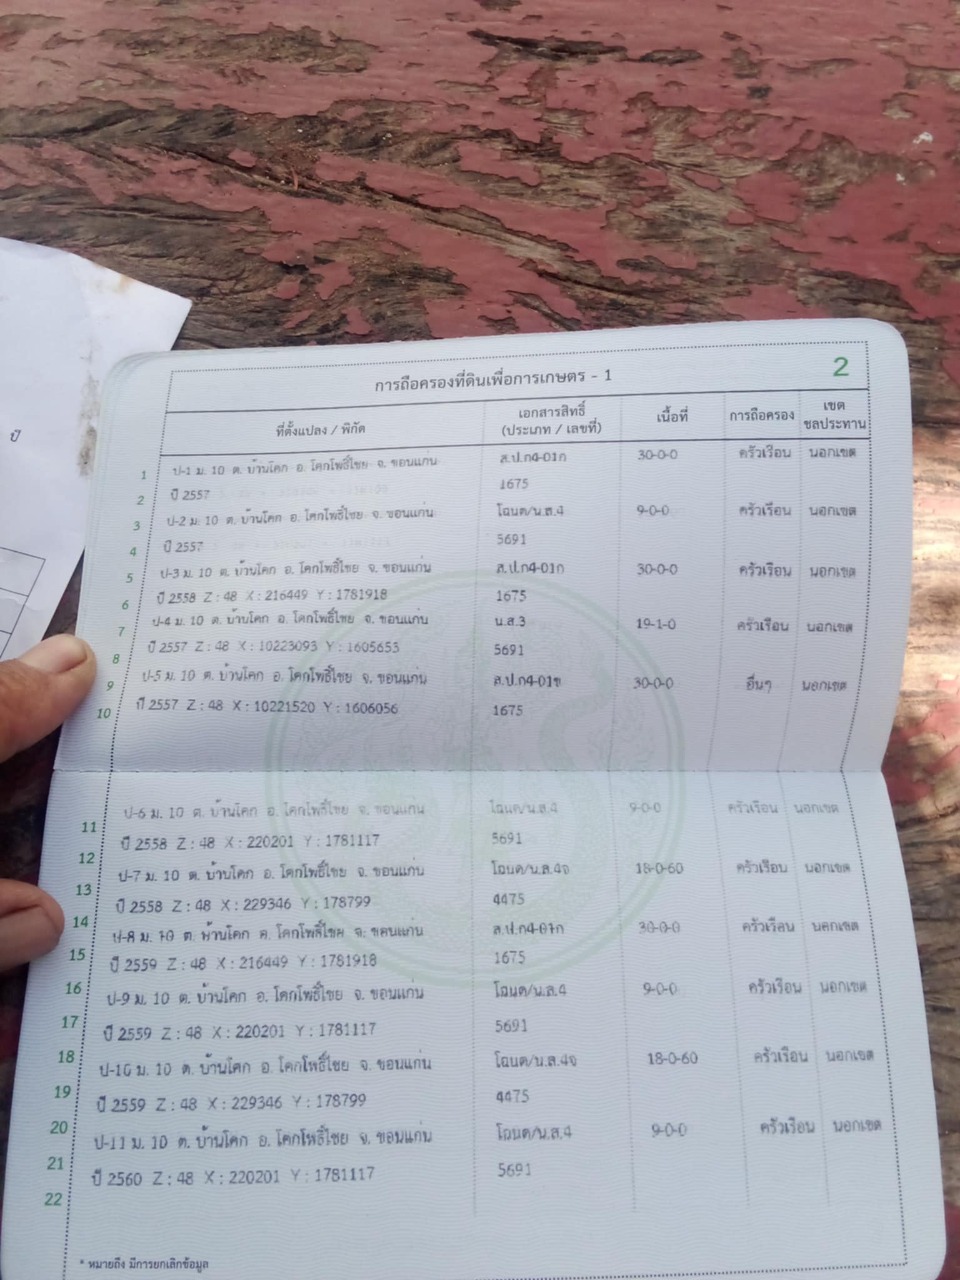 ปี
2
การถือครองที่ดินเพื่อการเกษตร - 1
ที่ตั้งแปลง / พิกัด เอกสารสิทธิ์ (ประเภท / เลขที่) เนื้อที่ การถือครอง เขตชลประทาน
1 ป-1 ม. 10 ต. บ้านโคก อ. โคกโพธิ์ไชย จ. ขอนแก่น ส.ป.ก4-01ก 30-0-0 ครัวเรือน นอกเขต
2 ปี 2557 1675
3 ป-2 ม. 10 ต. บ้านโคก อ. โคกโพธิ์ไชย จ. ขอนแก่น โฉนด/น.ส.4 9-0-0 ครัวเรือน นอกเขต
4 ปี 2557 5691
5 ป-3 ม. 10 ต. บ้านโคก อ. โคกโพธิ์ไชย จ. ขอนแก่น ส.ป.ก4-01ก 30-0-0 ครัวเรือน นอกเขต
6 ปี 2558 Z : 48 X : 216449 Y : 1781918 1675
7 ป-4 ม. 10 ต. บ้านโคก อ. โคกโพธิ์ไชย จ. ขอนแก่น น.ส.3 19-1-0 ครัวเรือน นอกเขต
8 ปี 2557 Z : 48 X : 10223093 Y : 1605653 5691
9 ป-5 ม. 10 ต. บ้านโคก อ. โคกโพธิ์ไชย จ. ขอนแก่น ส.ป.ก4-01ข 30-0-0 อื่นๆ นอกเขต
10 ปี 2557 Z : 48 X : 10221520 Y : 1606056 1675
11 ป-6 ม. 10 ต. บ้านโคก อ. โคกโพธิ์ไชย จ. ขอนแก่น โฉนด/น.ส.4 9-0-0 ครัวเรือน นอกเขต
12 ปี 2558 Z : 48 X : 220201 Y : 1781117 5691
13 ป-7 ม. 10 ต. บ้านโคก อ. โคกโพธิ์ไชย จ. ขอนแก่น โฉนด/น.ส.4จ 18-0-60 ครัวเรือน นอกเขต
14 ปี 2558 Z : 48 X : 229346 Y : 178799 4475
15 ป-8 ม. 10 ต. บ้านโคก อ. โคกโพธิ์ไชย จ. ขอนแก่น ส.ป.ก4-01ก 30-0-0 ครัวเรือน นอกเขต
16 ปี 2559 Z : 48 X : 216449 Y : 1781918 1675
17 ป-9 ม. 10 ต. บ้านโคก อ. โคกโพธิ์ไชย จ. ขอนแก่น โฉนด/น.ส.4 9-0-0 ครัวเรือน นอกเขต
18 ปี 2559 Z : 48 X : 220201 Y : 1781117 5691
19 ป-10 ม. 10 ต. บ้านโคก อ. โคกโพธิ์ไชย จ. ขอนแก่น โฉนด/น.ส.4จ 18-0-60 ครัวเรือน นอกเขต
20 ปี 2559 Z : 48 X : 229346 Y : 178799 4475
21 ป-11 ม. 10 ต. บ้านโคก อ. โคกโพธิ์ไชย จ. ขอนแก่น โฉนด/น.ส.4 9-0-0 ครัวเรือน นอกเขต
22 ปี 2560 Z : 48 X : 220201 Y : 1781117 5691
* หมายถึง มีการยกเลิกข้อมูล